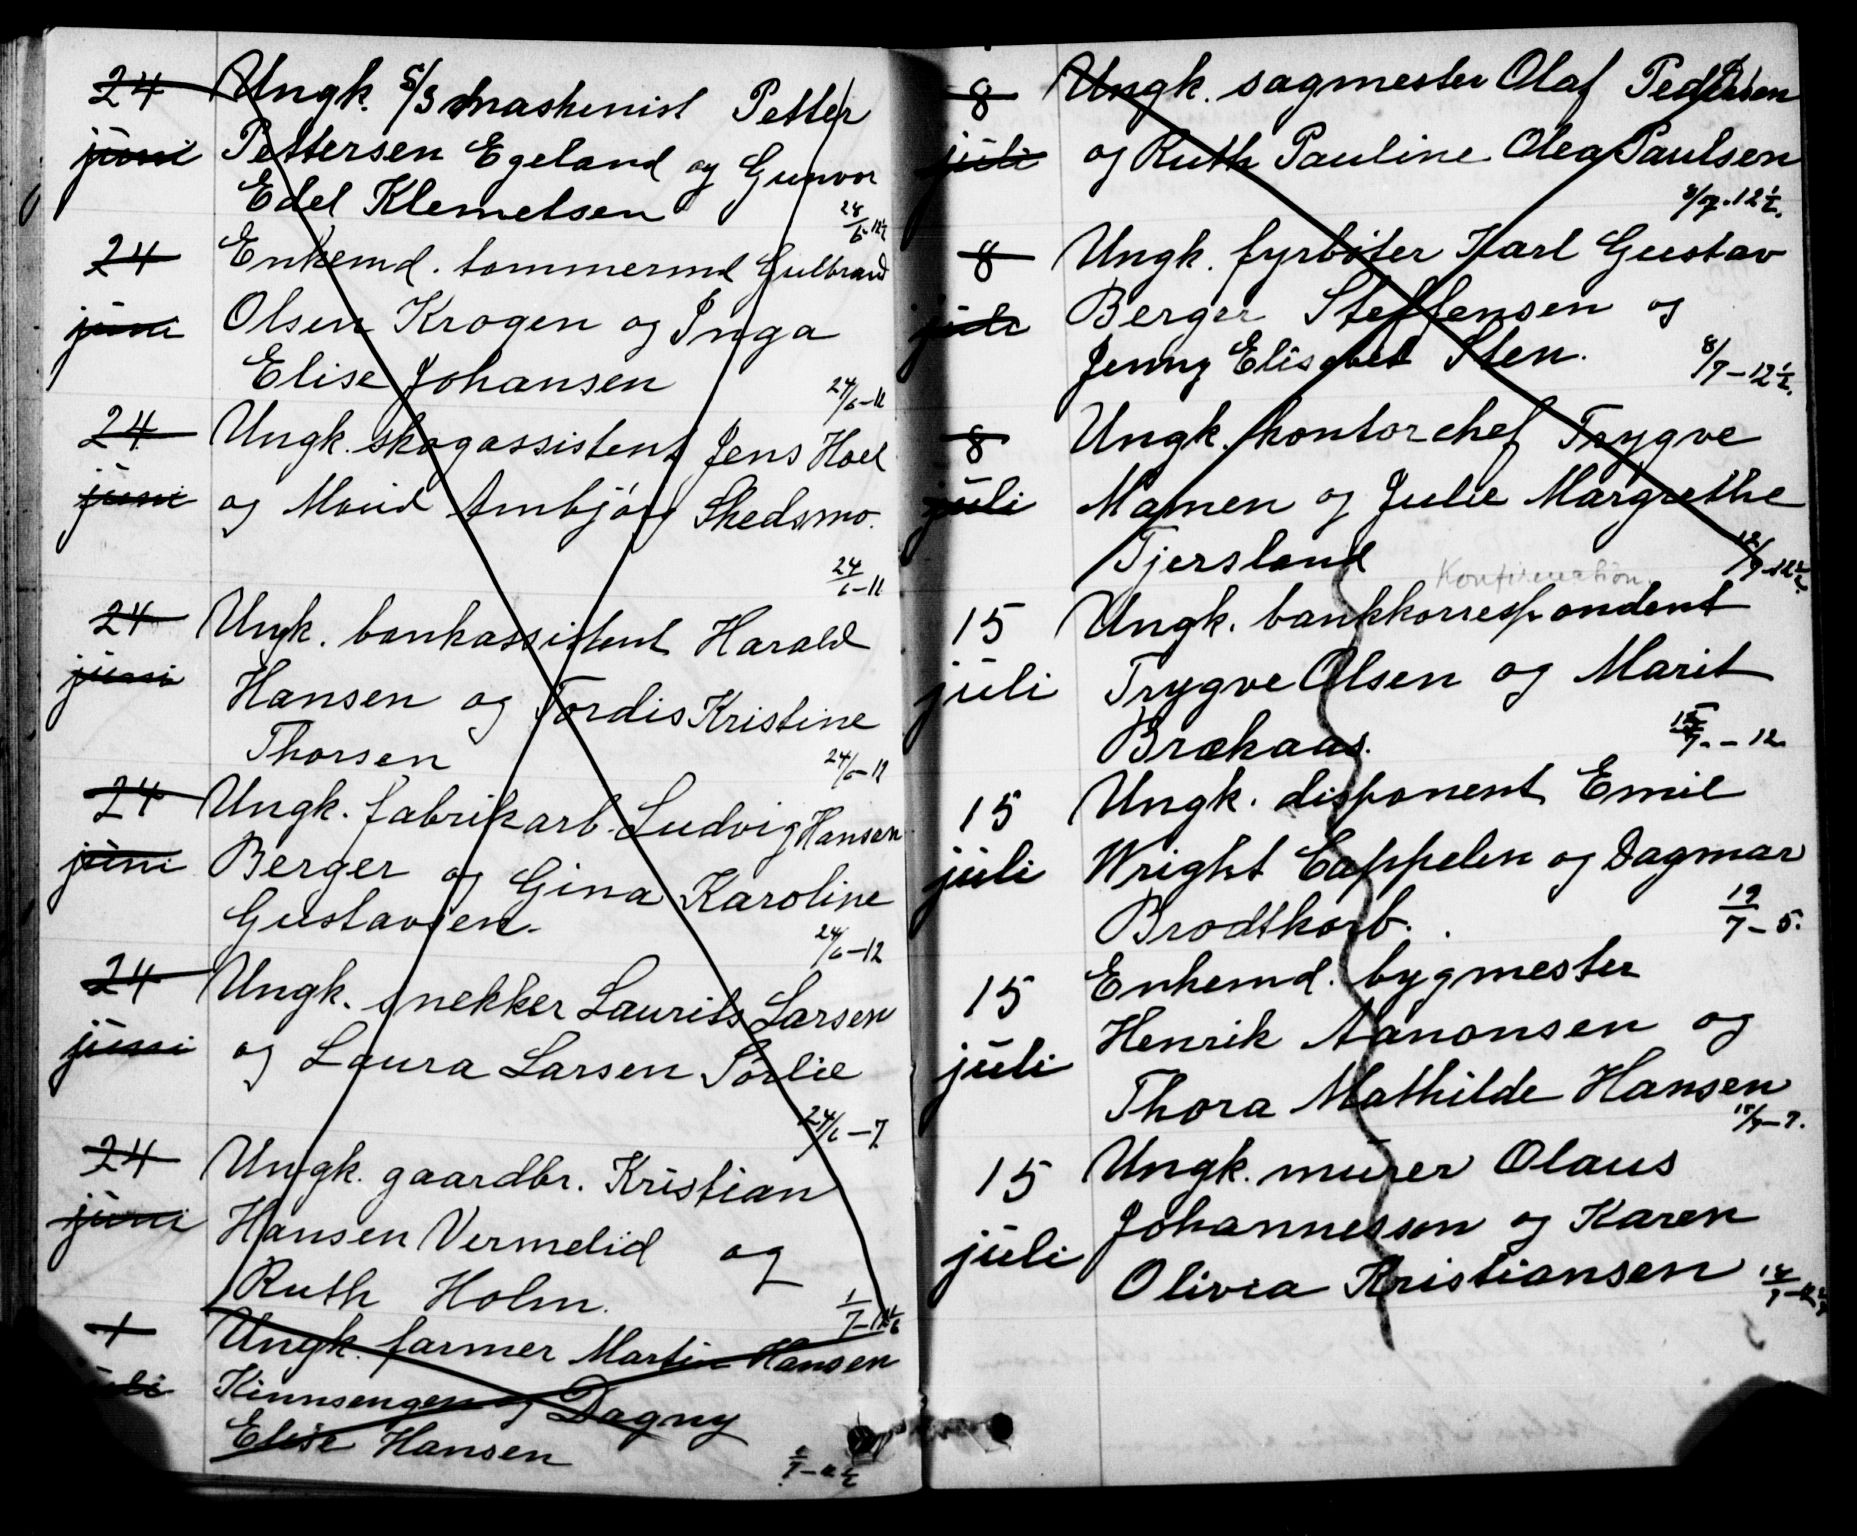 24 Ungk. S/S maskinist Petter
juni Pettersen Egeland og Gunvor
Edel Klemetsen 28/6-12½
24 Enkemd. tømmermd Gulbrand
juni Olsen Krogen og Inga
Elise Johansen 24/6-11
24 Ungk. skogassistent Jens Hoel
juni og Moid Arnbjørg Skedsmo.
24/6-11
24 Ungk. bankassistent Harald
juni Hansen og Tordis Kristine
Thorsen 24/6-12
24 Ungk. fabrikarb. Ludvig Hansen
juni Berger og Gina Karoline
Gustavsen. 24/6-12
24 Ungk. snekker Laurits Larsen
juni og Laura Larsen Sørlie
24/6-7
24 Ungk. gaardbr. Kristian
juni Hansen Vermelid og
Ruth Holm. 1/7
1 Ungk. farmer Martin Hansen
juli Kinnsengen og Dagny
Elise Hansen
8 Ungk. sagmester Olaf Pedersen
juli og Ruth Pauline Olea Paulsen
8/7-12½.
8 Ungk. fyrbøter Karl Gustav
juli Berger Steffensen og
Jenny Elisabet Sten. 8/7-12½.
8 Ungk. kontorchef Trygve
juli Mamen og Julie Margrethe
Tjersland
Konfirmation.
15 Ungk. bankkorrespondent
juli Trygve Olsen og Marit
Brækaas. 15/7.-12
15 Ungk. disponent Emil
juli Wright Cappelen og Dagmar
Brodtkorb. 19/7-5.
15 Enkemd. bygmester
juli Henrik Aanonsen og
Thora Mathilde Hansen
15/7-7.
15 Ungk. murer Olaus
juli Johannessen og Karen
Olivia Kristiansen